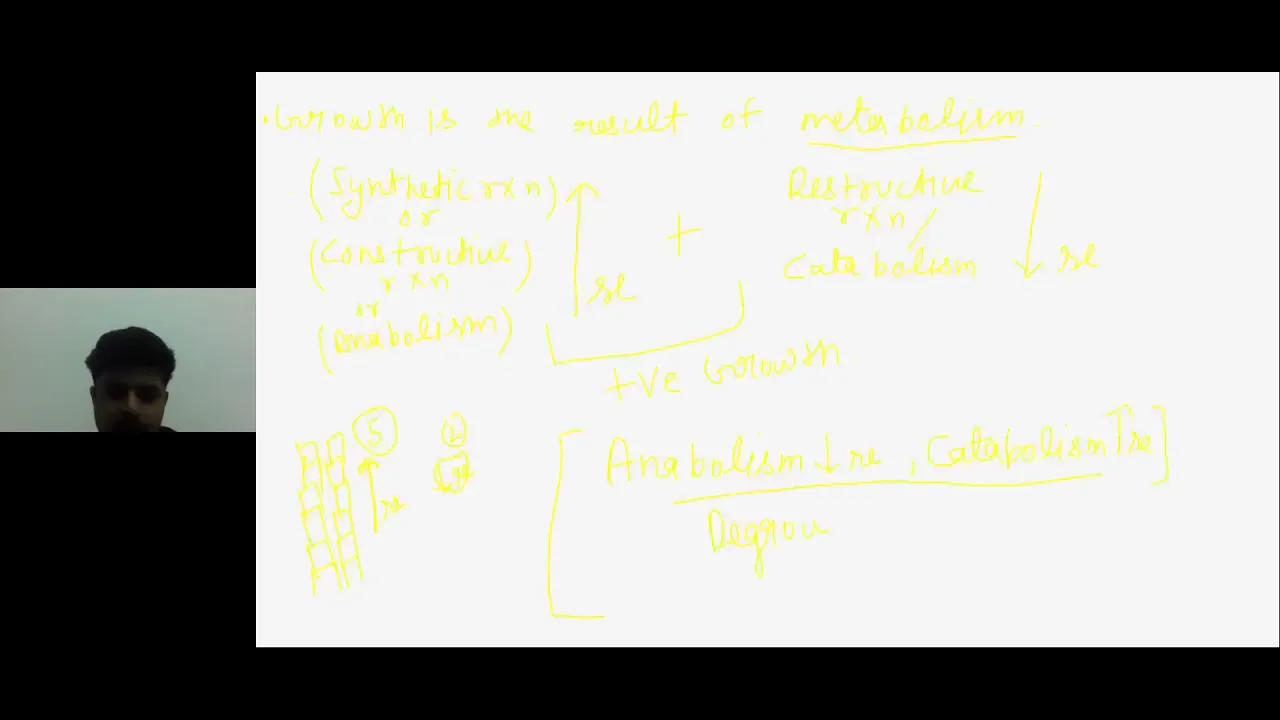 • Growth is the result of metabolism.
(Synthetic rxn) ↑ se + Destructive rxn / ↓ se
or
(Constructive rxn) Catabolism
or
(Anabolism)
+ve Growth
5 2
↑ se
[Anabolism ↓ se , Catabolism ↑ se]
Degrow